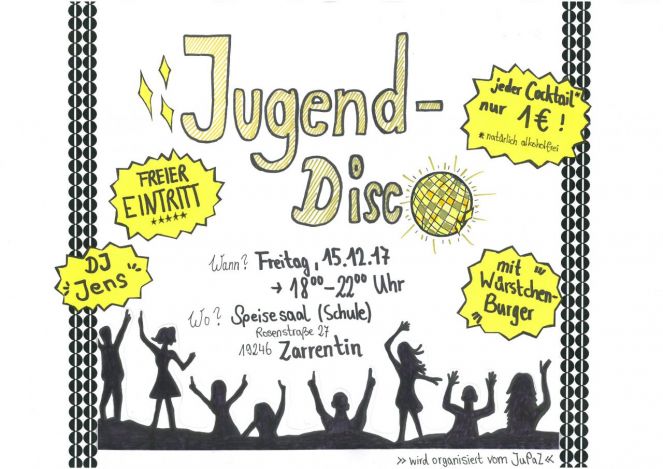 Jugend-
Disco
jeder Cocktail*
nur 1€!
* natürlich alkoholfrei
FREIER
EINTRITT
★★★★★
DJ
Jens
Wann? Freitag, 15.12.17
→ 18⁰⁰-22⁰⁰ Uhr
Wo? Speisesaal (Schule)
Rosenstraße 27
19246 Zarrentin
mit
Würstchen-
Burger
»wird organisiert vom JuPaZ«